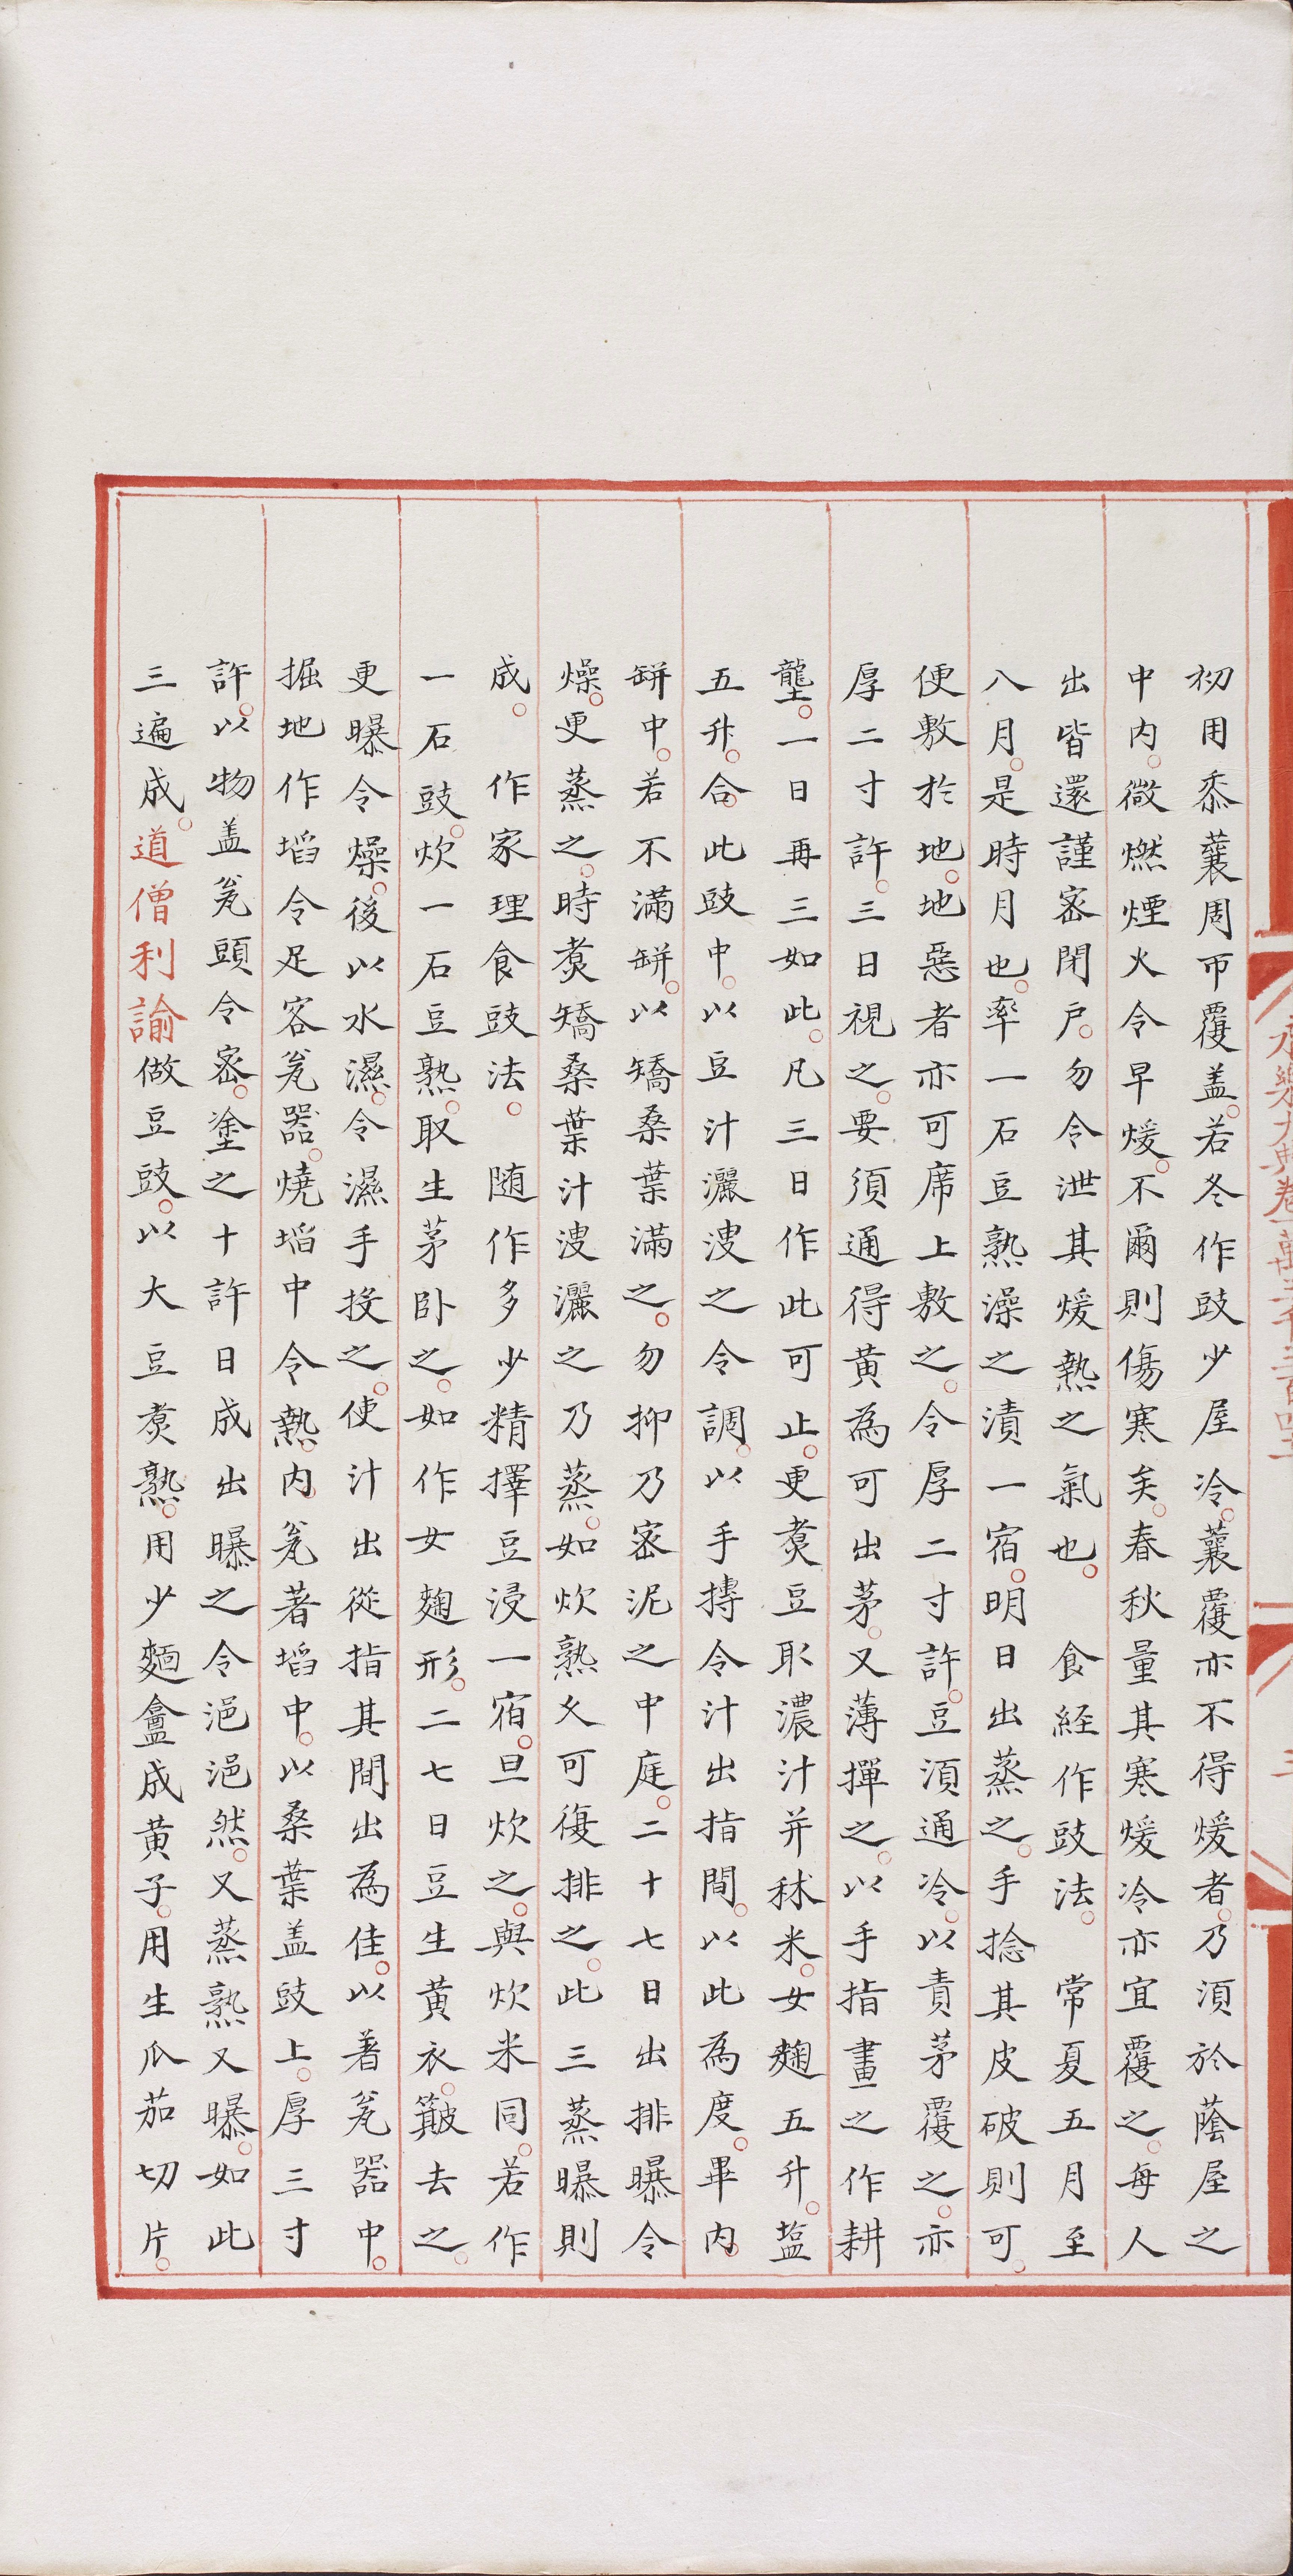 初用黍蘘周帀覆盖若冬作豉少屋冷蘘覆亦不得煖者乃湏於蔭屋之
中内微燃煙火令早煖不爾則傷寒矣春秋量其寒煖冷亦宜覆之每人
出皆還謹密閉户勿令泄其煖熱之氣也食経作豉法常夏五月至
八月是時月也率一石豆熟澡之漬一宿明日出蒸之手捻其皮破則可
便敷於地地惡者亦可席上敷之令厚二寸許豆湏通冷以責茅覆之亦
厚二寸許三日視之要須通得黄為可出茅又薄撣之以手指畫之作耕
壟一日再三如此凡三日作此可止更煑豆取濃汁并秫米女麴五升塩
五升合此豉中以豆汁灑溲之令調以手摶令汁出指間以此為度畢内
缾中若不滿缾以矯桑葉滿之勿抑乃密泥之中庭二十七日出排曝令
燥更蒸之時煑矯桑葉汁溲灑之乃蒸如炊熟乆可復排之此三蒸曝則
成作家理食豉法随作多少精擇豆浸一宿旦炊之與炊米同若作
一石豉炊一石豆熟取生茅卧之如作女麴形二七日豆生黄衣簸去之
更曝令燥後以水濕令濕手挼之使汁出從指其間出為佳以著瓮器中
掘地作埳令足容瓮器燒埳中令熱内瓮著埳中以桑葉盖豉上厚三寸
許以物盖瓮頭令密塗之十許日成出曝之令浥浥然又蒸熟又曝如此
三遍成道僧利論做豆豉以大豆煑熟用少麵盦成黄子用生瓜茄切片
永樂大典卷
三